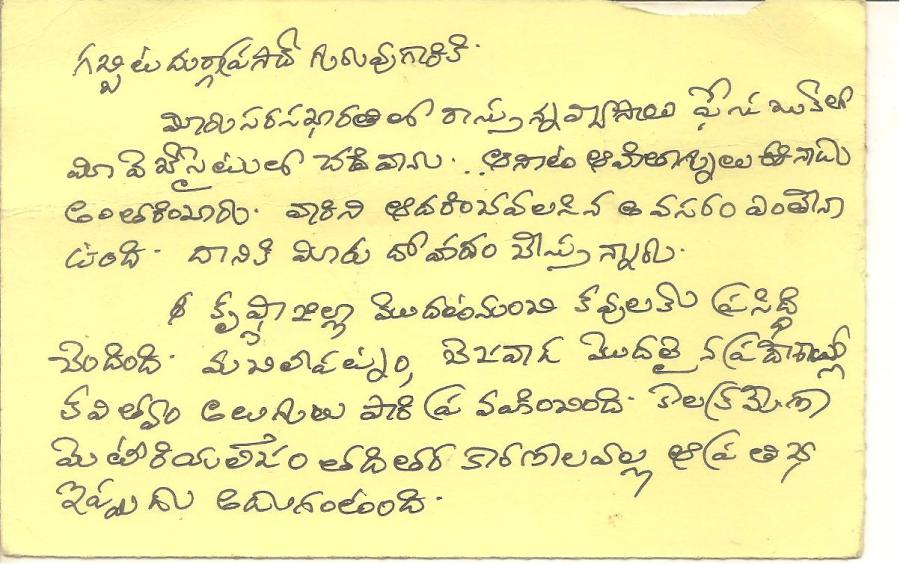 గబ్బిట దుర్గాప్రసాద్ గురువుగారికి.
మీరు సరసభారతిలో రాస్తున్న వ్యాసాలు ఫేస్ బుక్‌లో
మీ వెబ్సైటులో చదివాను. ..ఆనాటి ఈనాడు
అంతరించారు. వారిని ఆదరించవలసిన అవసరం ఎంతైనా
ఉంది. దానికి మీరు దోహదం చేస్తున్నారు.
కృష్ణాజిల్లా మొదటినుంచి కవులకు ప్రసిద్ధి
చెందింది. మచిలీపట్నం, బెజవాడ మొదలైన ప్రదేశాల్లో
కవిత్వం పారి ప్రవహించింది. కాలక్రమేణా
మెటీరియలిజం తదితర కారణాలవల్ల ఆ ప్రతిభ
ఇప్పుడు అడుగంటుంది.